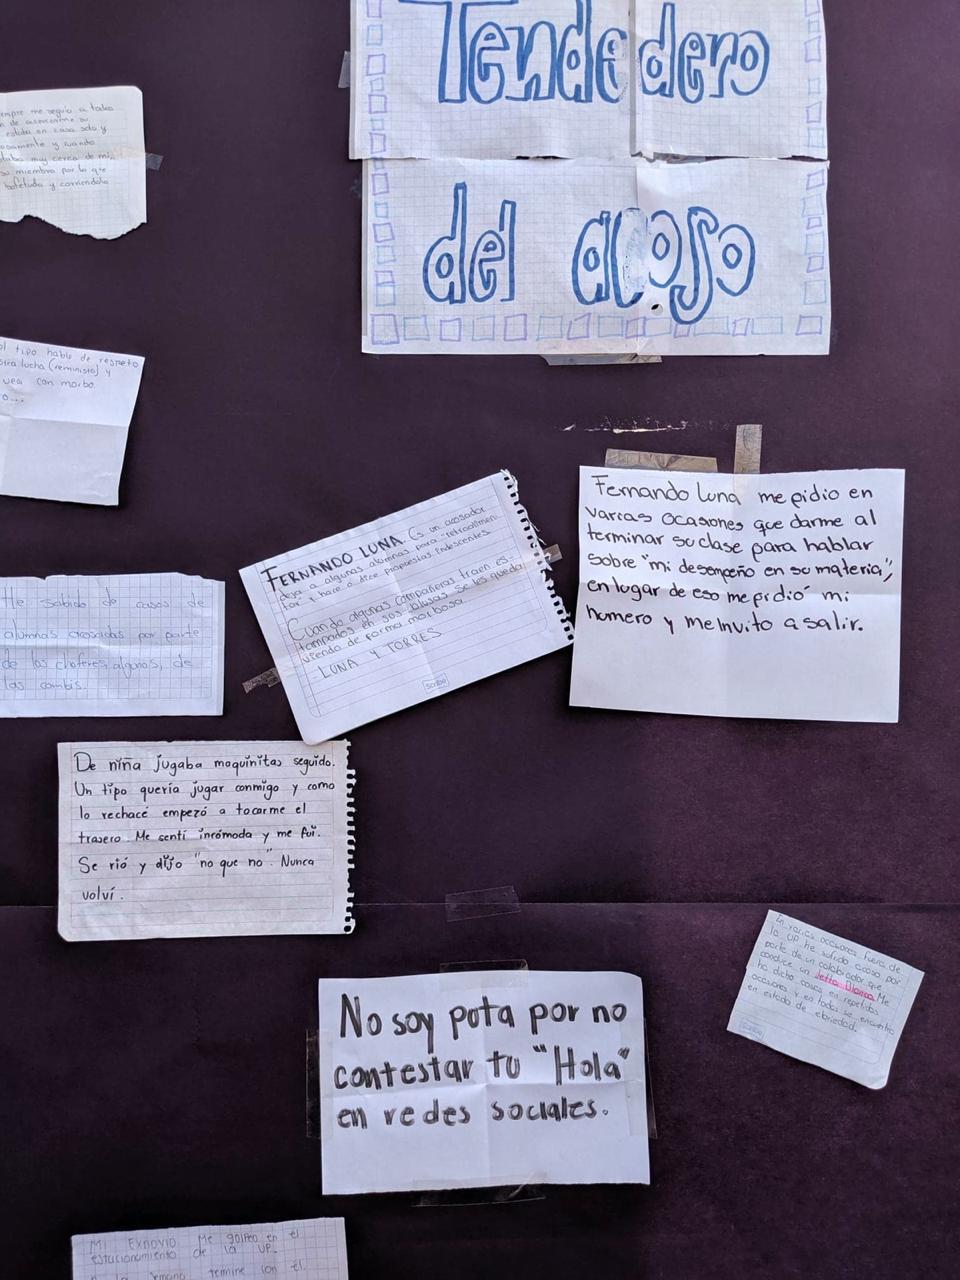 Tendedero
del acoso
empre me seguía a todos
estaba en casa sola y
osamente y cuando
taba muy cerca de mí,
su miembro por lo que
bofetada y corriendolo
tipo habla de respeto
lucha (feminista) y
vea con morbo.
He sabido de casos de
alumnas acosadas por parte
de los choferes, algunos, de
las combis.
FERNANDO LUNA. Es un acosador
deja a algunas alumnas para "retroalimen-
tar" y hace o dice propuestas indescentes.
Cuando algunas compañeras traen es-
tampados en sus blusas se les queda
viendo de forma morbosa.
-LUNA Y TORRES
Scribe
Fernando Luna me pidio en
varias ocasiones que darme al
terminar su clase para hablar
sobre "mi desempeño en su materia",
en lugar de eso me pidió mi
numero y me invito a salir.
De niña jugaba maquinitas seguido.
Un tipo quería jugar conmigo y como
lo rechacé empezó a tocarme el
trasero. Me sentí incómoda y me fui.
Se rió y dijo "no que no". Nunca
volví.
En varias occasiones fuera de
la UP he sufrido acoso por
parte de un colaborador que
conduce un Jetta Blanco. Me
ha dicho cosas en repetidas
ocasiones y en todas se encuentra
en estado de ebriedad.
Scribe
No soy puta por no
contestar tu "Hola"
en redes sociales.
Mi Exnovio Me golpeo en el
estacionamiento de la UP.
semana termine con él.